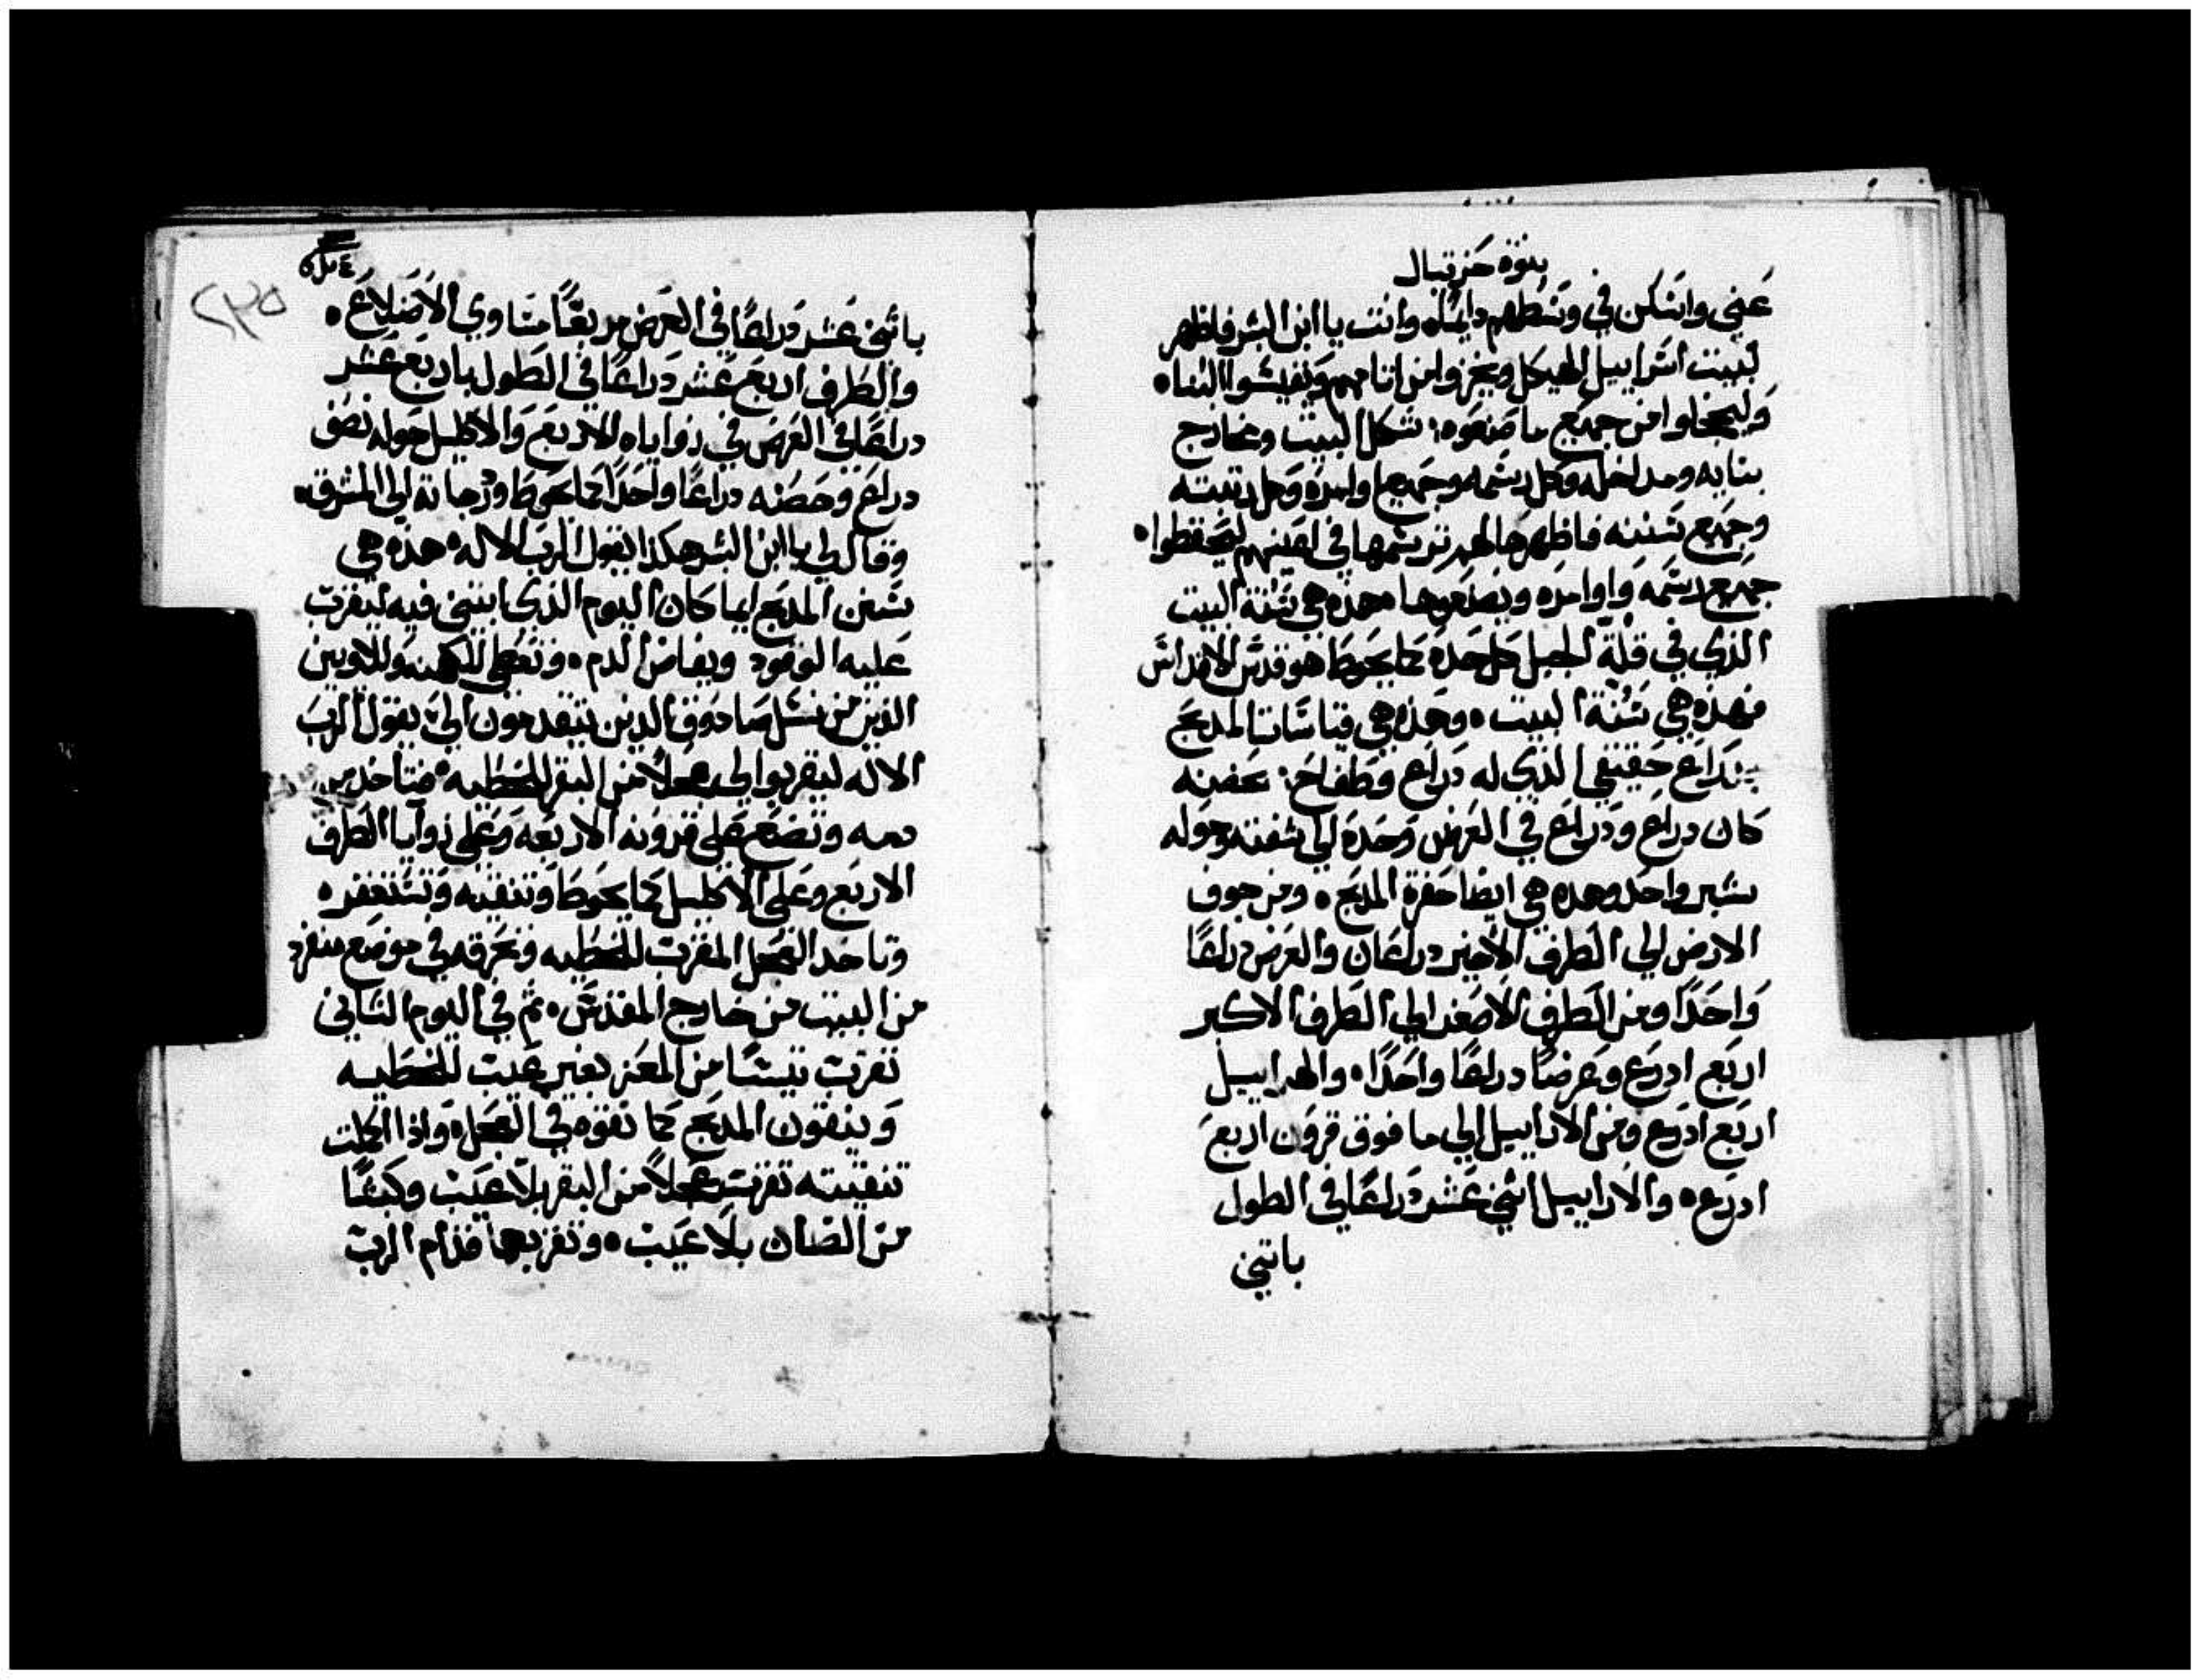 بنوة حزقيال
عني واسكن في وسطهم دايماه وانت يا ابن البشر فاظهر
لبيت اسراييل الهيكل ويخزوا من اثامهم ويفيشوا البناه
وليخجلوا من جميع ما صنعوه: شكل البيت ومخارج
بنايه ومداخله وكل رسمه وجميع اوامره وكل رتبته
وجميع سننه فاظهرها لهم ترسمها في اعينهم ليحفظوا
جميع رسمه واوامره ويصنعوها هذه هي سنة البيت
الذي في قلة الجبل كل حده كما يحوط هو قدس الاقداس
فهذه هي سنة البيت ه وهذه هي قياسات المدبح
بدراع حقيقي الذي له دراع وطفاح: عمقه
كان دراع ودراع في العرض وحده الي شفته وحوله
شبر واحد وهده هي ايضا حفرة المدبح ه ومن جوف
الارض الي الطرف الاخير دراعان والعرض دراعًا
واحدًا ومن الطرف الاصغر الي الطرف الاكبر
اربع ادرع وعرضا دراعًا واحدًا ه والهداييل
اربع ادرع ومن الاراييل الي ما فوق قرون اربع
ادرع ه والاراييل اثني عشر دراعًا في الطول
باثني
٢٣٥
باثني عشر دراعًا في العرض مربعًا متساوي الاضلاع ه
والطرف اربع عشر دراعًا في الطول باربع عشر
دراعًا في العرض في زواياه الاربع والاكليل حوله نصف
دراع وحصنه دراعًا واحدًا كما يحوط ودرجاته الي المشرق ه
وقال لي يا ابن البشر هكذا يقول الرب الاله ه هذه هي
سنن المدبح ايما كان اليوم الذي ابتني فيه ليقرب
عليه الوقود ويفاض الدم ه وتعطي للكهنه وللاويين
الذين من نسل صادوق الدين يتقدمون الي يقول الرب
الاله ليقربوا لي عجلًا من البقر للخطيه ه فتاخد من
دمه وتضع علي قرونه الاربعه وعلي زوايا الطرف
الاربع وعلي الاكليل كما يحوط وتنقيه وتستغفر ه
وتاخد العجل المقرب للخطيه وتحرقه في موضع منفرد
من البيت من خارج المقدس ه ثم في اليوم التاني
تقرب تيسًا من المعز بغير عيب للخطيه
وينقون المدبح كما نقوه في العجل ه واذا اكملت
تنقيته تقرب عجلًا من البقر بلا عيب وكبشًا
من الضان بلا عيب ه وتقربهما قدام الرب